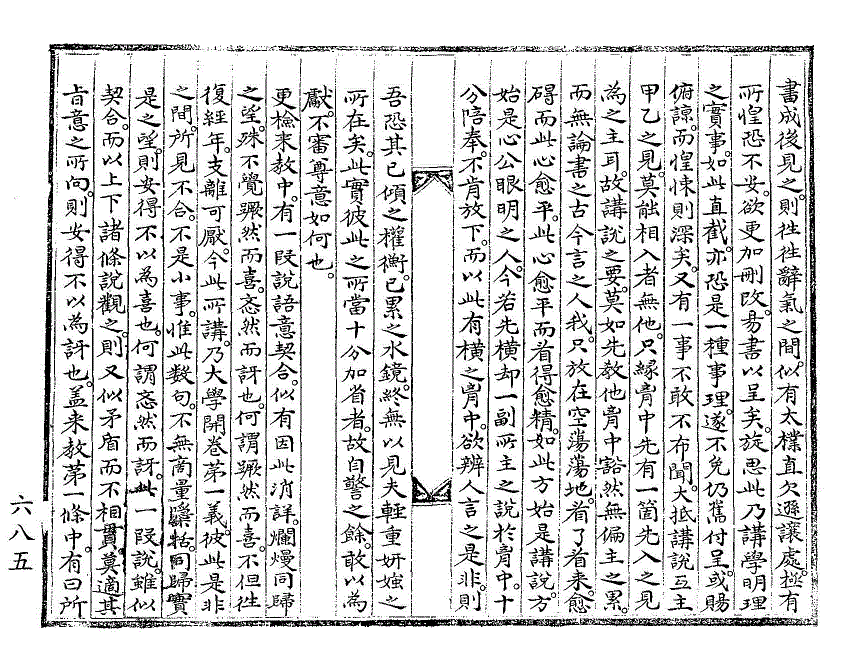 書成後見之。則往往辭氣之間。似有太樸直欠遜讓處。極有
所惶恐不安。欲更加刪改。易書以呈矣。旋思此乃講學明理
之實事。如此直截。亦恐是一種事理。遂不免仍舊付呈。或賜
俯諒。而惶悚則深矣。又有一事不敢不布聞。大抵講說互主
甲乙之見。莫能相入者無他。只緣胷中先有一箇先入之見
為之主耳。故講說之要。莫如先教他胷中豁然無偏主之累。
而無論書之古今言之人我。只放在空蕩蕩地。看了看來。愈
碍而此心愈平。此心愈平而看得愈精。如此方始是講說。方
始是心公眼明之人。今若先橫却一副所主之說於胷中。十
分陪奉。不肯放下。而以此有橫之胷中。欲辨人言之是非。則
吾恐其已傾之權衡。已累之水鏡。終無以見夫輕重妍媸之
所在矣。此實彼此之所當十分加省者。故自警之餘。敢以為
獻。不審尊意如何也。
更檢來教中。有一段說語意契合。似有因此消詳。爛熳同歸
之望。殊不覺蹶然而喜。忞然而訝也。何謂蹶然而喜。不但往
復經年。支離可厭。今此所講。乃大學開卷第一義。彼此是非
之間。所見不合。不是小事。惟此數句。不無商量檃栝。同歸實
是之望。則安得不以為喜也。何謂忞然而訝。此一段說。雖似
契合。而以上下諸條說觀之。則又似矛盾而不相貫。莫適其
旨意之所向。則安得不以為訝也。盖来教第一條中。有曰所
六八五